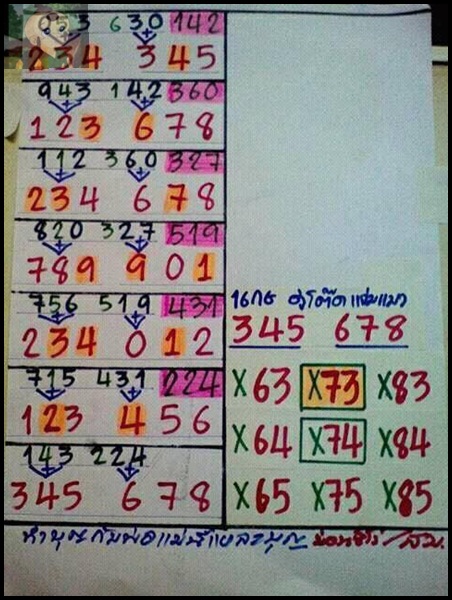 053 630 142
234 345
943 142 360
123 678
112 360 327
234 678
820 327 519
789 901
756 519 431
234 012
715 431 224
123 456
143 224
345 678
16กย
345 678
X63 X73 X83
X64 X74 X84
X65 X75 X85
ทำบุญกับพ่อแม่